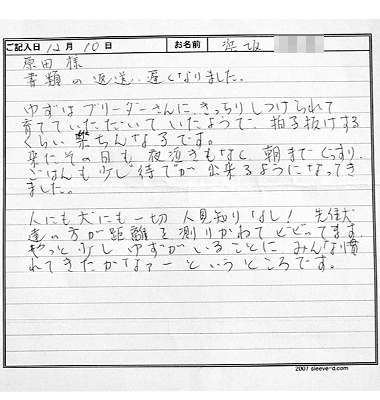 ご記入日 12月 10日 お名前 浜坂
原田 様
書類の返送、遅くなりました。
ゆずはブリーダーさんに、きっちりしつけられて
育てていただいていたようで、拍子抜けする
くらい楽ちんな子です。
来たその日も夜泣きもなく、朝までぐっすり、
ごはんも少し待てが出来るようになってき
ました。
人にも犬にも一切人見知りなし! 先住犬
達の方が距離を測りかねてビビッてます。
やっと少しゆずがいることにみんな慣
れてきたかなァーというところです。
2007 sleeve-d.com